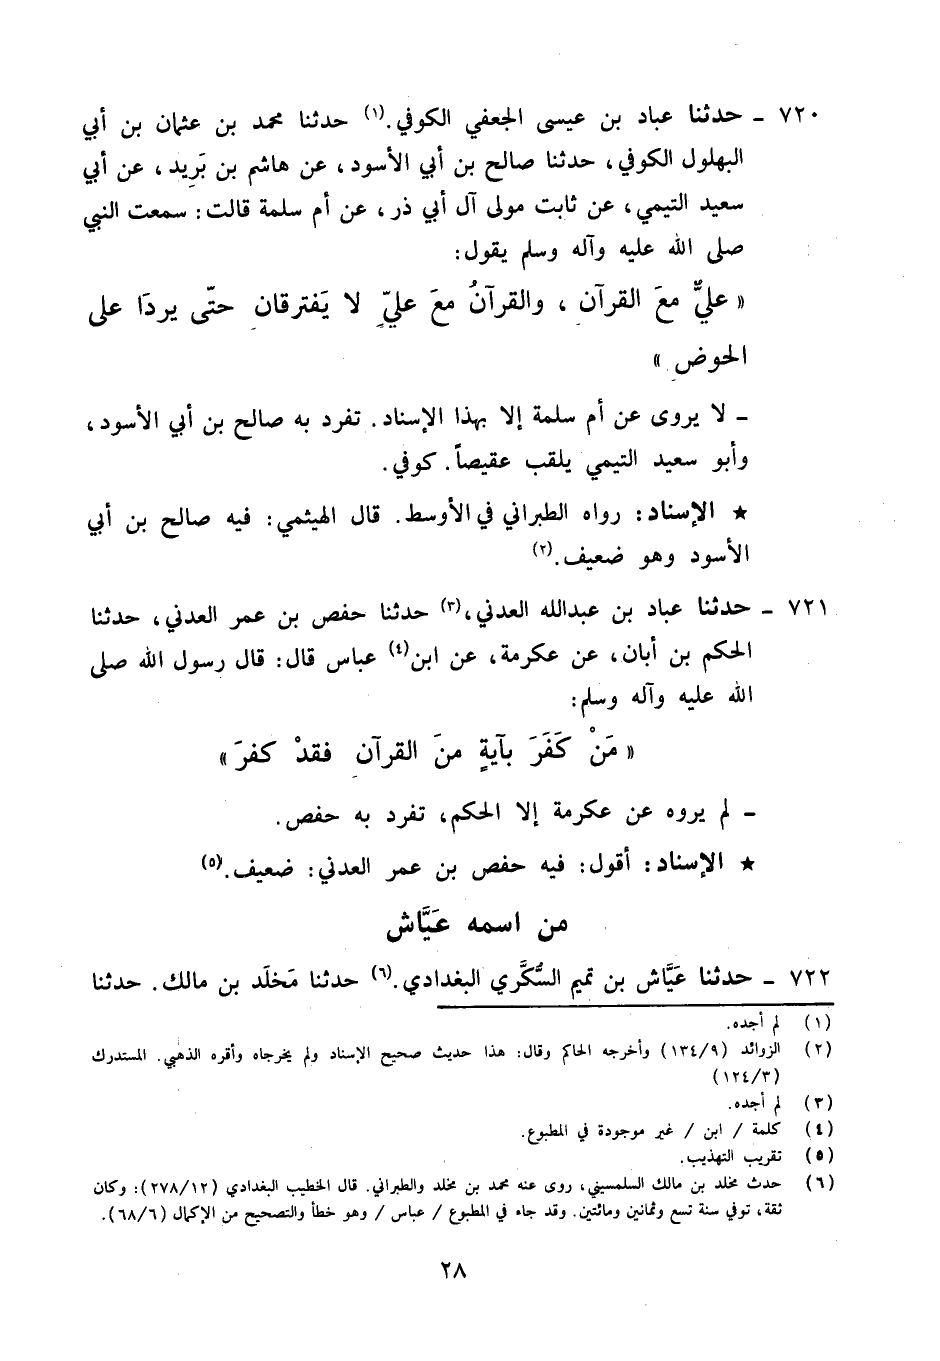 ٧٢٠ ـ حدثنا عباد بن عيسى الجعفي الكوفي.(١) حدثنا محمد بن عثمان بن أبي
البهلول الكوفي، حدثنا صالح بن أبي الأسود، عن هاشم بن بَرِيد، عن أبي
سعيد التيمي، عن ثابت مولى آل أبي ذر، عن أم سلمة قالت: سمعت النبي
صلى الله عليه وآله وسلم يقول:
« عليٌّ معَ القرآنِ ، والقرآنُ معَ عليٍّ لا يَفترقانِ حتّى يردَا على
الحوضِ »
ـ لا يروى عن أم سلمة إلا بهذا الإسناد. تفرد به صالح بن أبي الأسود،
وأبو سعيد التيمي يلقب عقيصاً. كوفي.
★ الإسناد: رواه الطبراني في الأوسط. قال الهيثمي: فيه صالح بن أبي
الأسود وهو ضعيف.(٢)
٧٢١ ـ حدثنا عباد بن عبدالله العدني،(٣) حدثنا حفص بن عمر العدني، حدثنا
الحكم بن أبان، عن عكرمة، عن ابن(٤) عباس قال: قال رسول الله صلى
الله عليه وآله وسلم:
« مَنْ كَفَرَ بآيةٍ منَ القرآنِ فقدْ كفرَ »
ـ لم يروه عن عكرمة إلا الحكم، تفرد به حفص.
★ الإسناد: أقول: فيه حفص بن عمر العدني: ضعيف.(٥)
من اسمه عَيَّاش
٧٢٢ ـ حدثنا عَيَّاش بن تميم السُّكَّري البغدادي.(٦) حدثنا مَخلَد بن مالك. حدثنا
(١) لم أجده.
(٢) الزوائد (١٣٤/٩) وأخرجه الحاكم وقال: هذا حديث صحيح الإسناد ولم يخرجاه وأقره الذهبي. المستدرك
(١٢٤/٣)
(٣) لم أجده.
(٤) كلمة / ابن / غير موجودة في المطبوع.
(٥) تقريب التهذيب.
(٦) حدث مخلد بن مالك السلمسيني، روى عنه محمد بن مخلد والطبراني. قال الخطيب البغدادي (٢٧٨/١٢): وكان
ثقة، توفي سنة تسع وثمانين ومائتين. وقد جاء في المطبوع / عباس / وهو خطأ والتصحيح من الإكمال (٦٨/٦).
٢٨